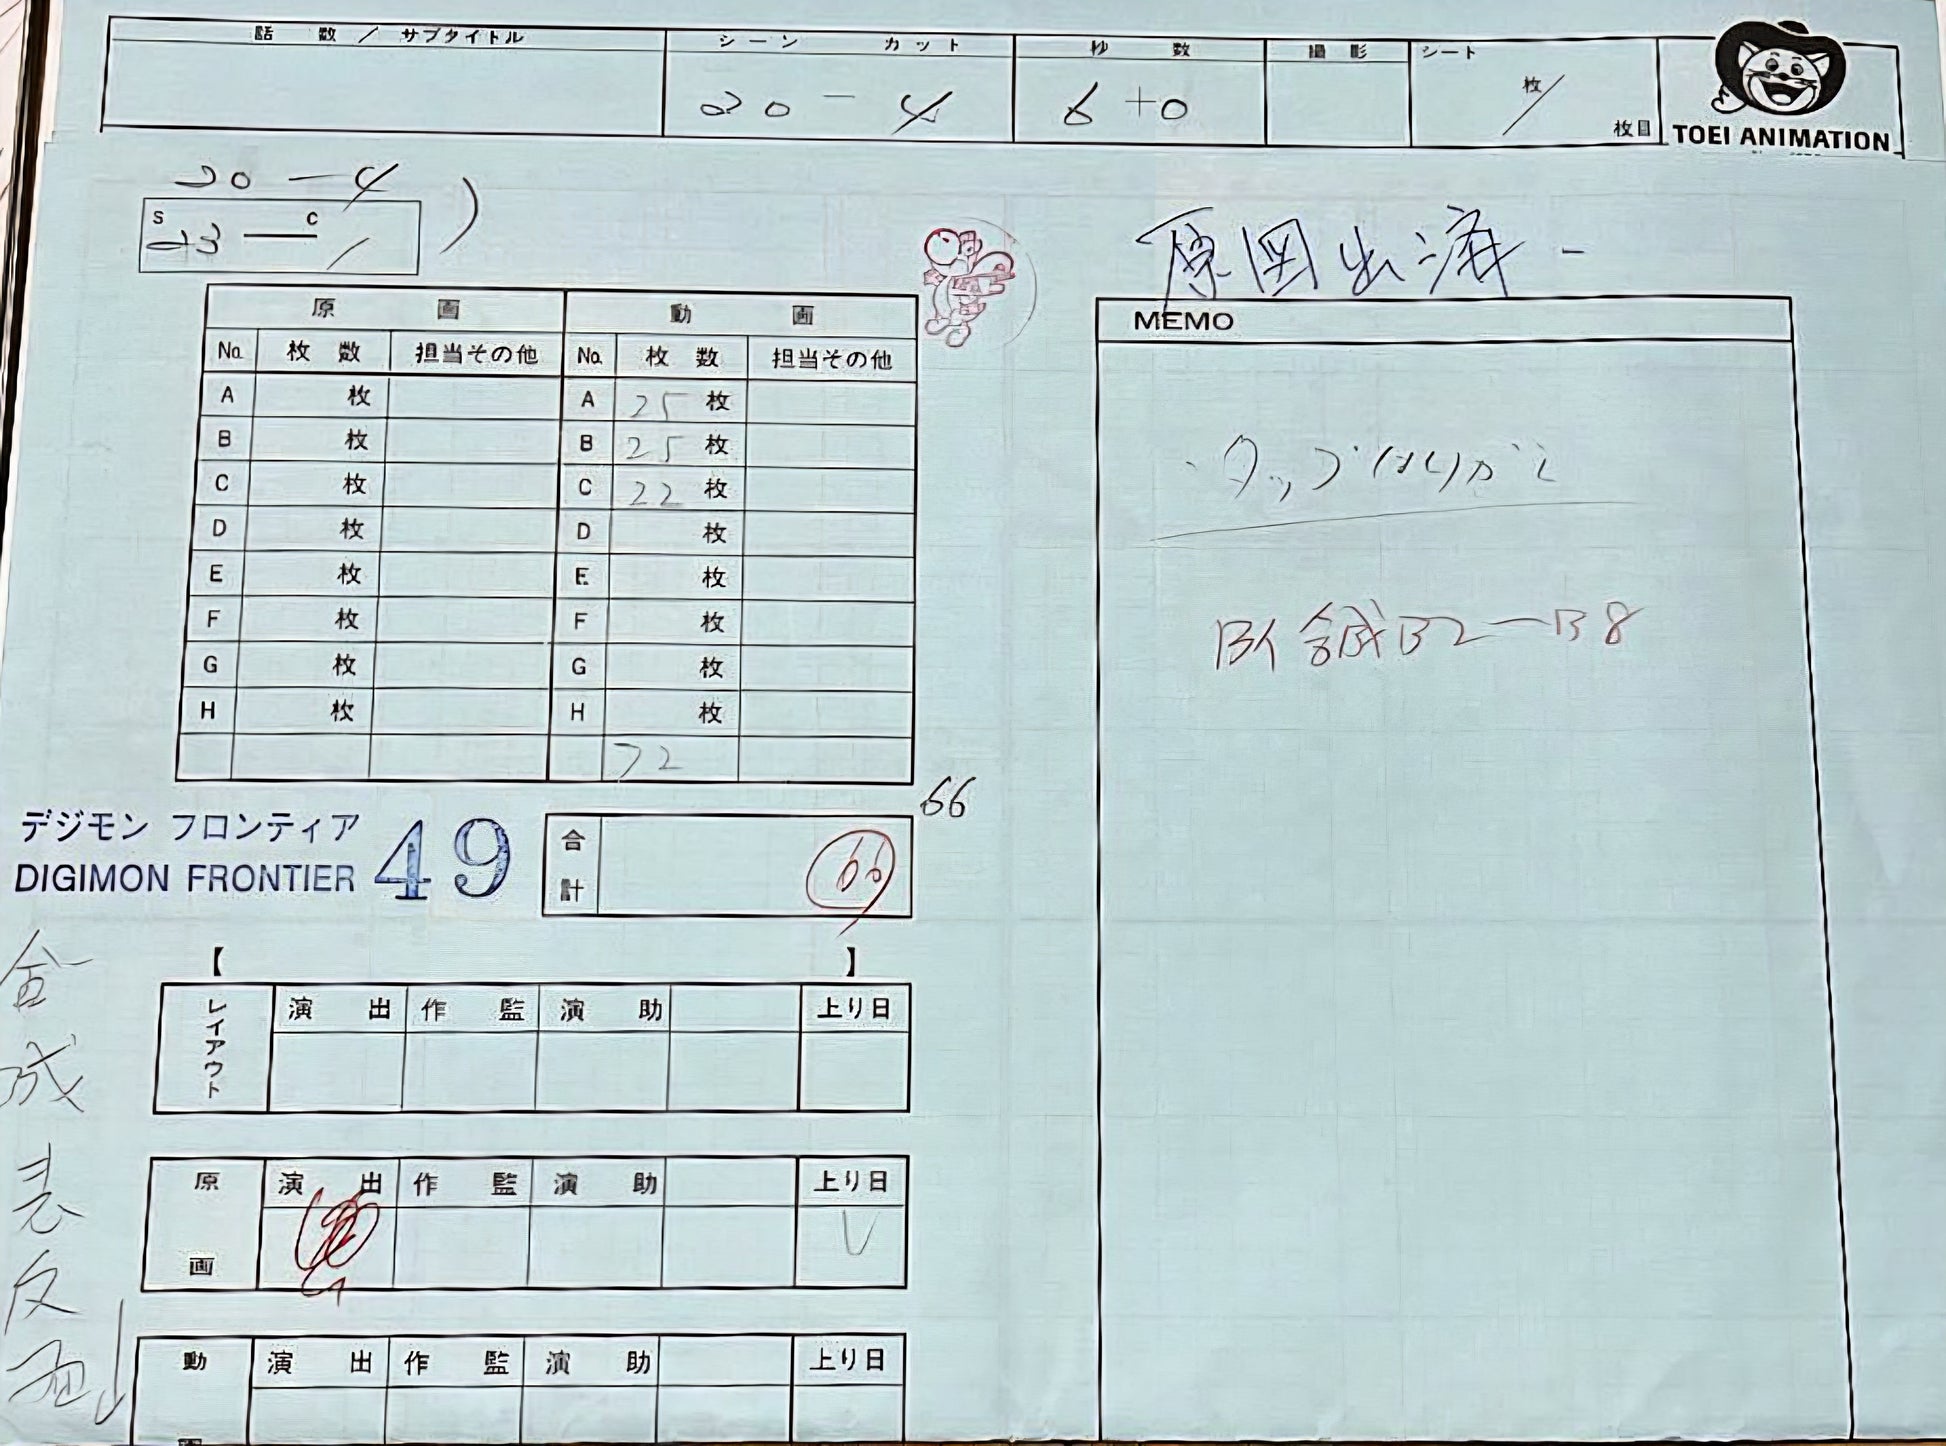 話 数 / サブタイトル
シーン カット
秒 数
撮 影
シート
20 - 4
6 + 0
枚 /
枚目
TOEI ANIMATION
20 - 4
S C
原図出済 -
原 画 動 画
No. 枚 数 担当その他 No. 枚 数 担当その他
A 枚 A 25 枚
B 枚 B 25 枚
C 枚 C 22 枚
D 枚 D 枚
E 枚 E 枚
F 枚 F 枚
G 枚 G 枚
H 枚 H 枚
72
66
MEMO
・タップはりかえ
B2 — B8
デジモン フロンティア
DIGIMON FRONTIER 49
合計 66
【 】
レイアウト 演 出 作 監 演 助 上り日
原画 演 出 作 監 演 助 上り日
動画 演 出 作 監 演 助 上り日
合成表